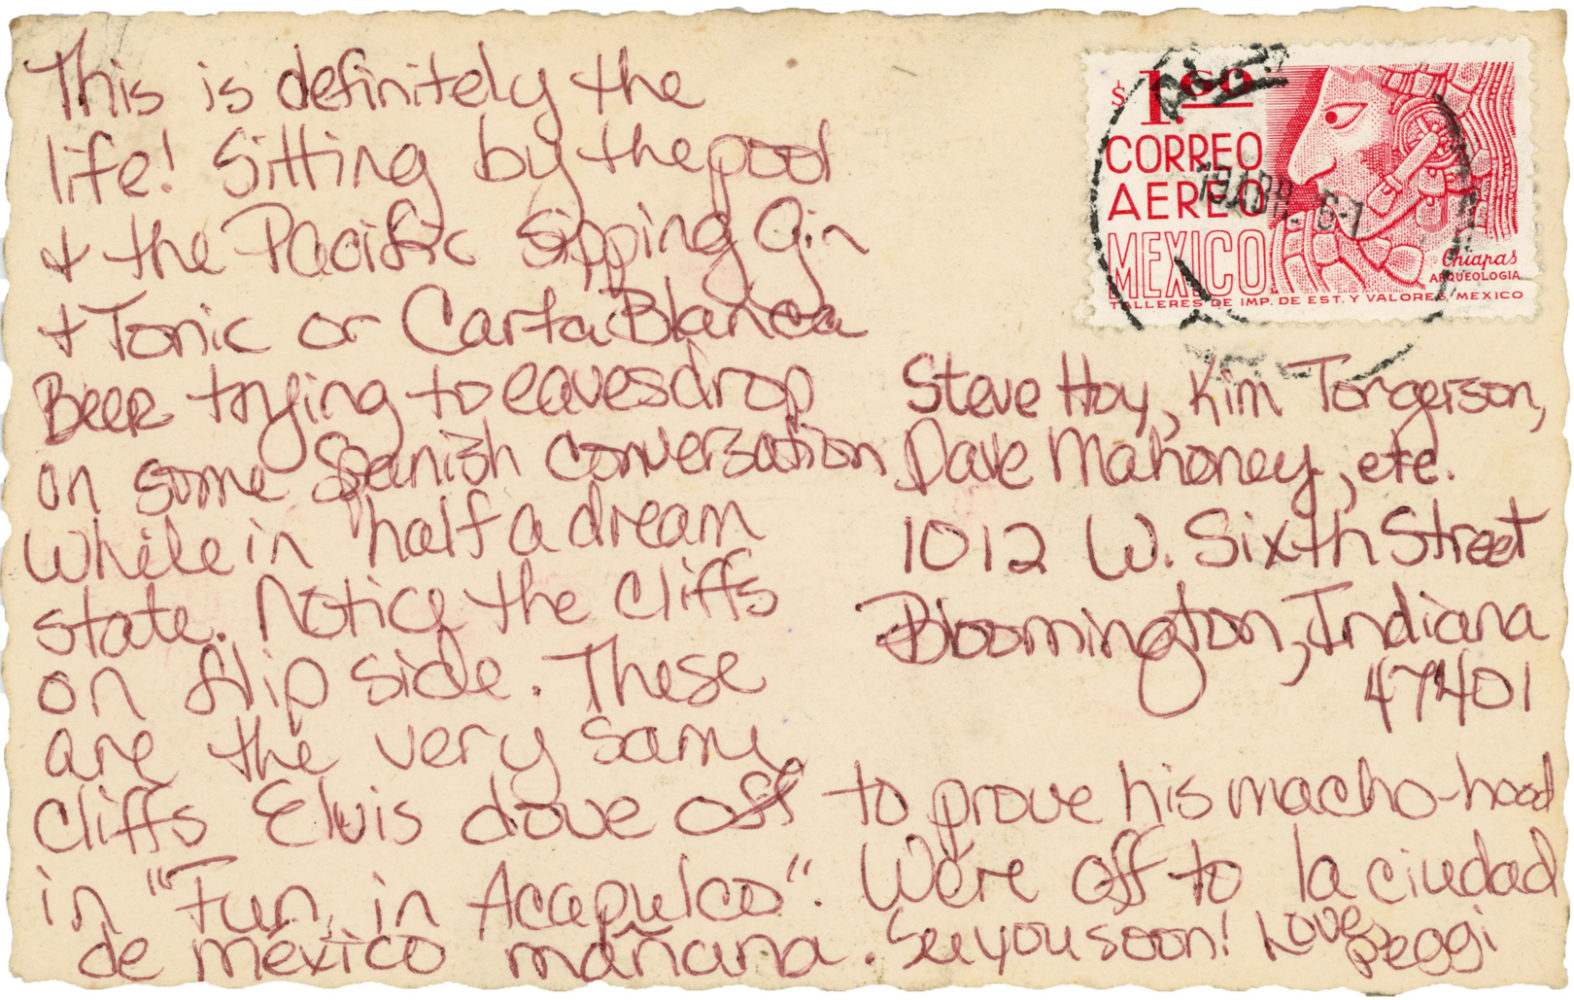 This is definitely the
life! Sitting by the pool
+ the Pacific sipping Gin
+ Tonic or Carta Blanca
Beer trying to eavesdrop
on some Spanish conversation
while in half a dream
state. Notice the cliffs
on flip side. These
are the very same
cliffs Elvis dove off to prove his macho-hood
in "Fun in Acapulco". We're off to la ciudad
de méxico mañana. See you soon! Love,
Peggi
$1.60
CORREO
AEREO
MEXICO
Chiapas
ARQUEOLOGIA
TALLERES DE IMP. DE EST. Y VALORES, MEXICO
Steve Hoy, Kim Torgerson,
Dave Mahoney, etc.
1012 W. Sixth Street
Bloomington, Indiana
47401